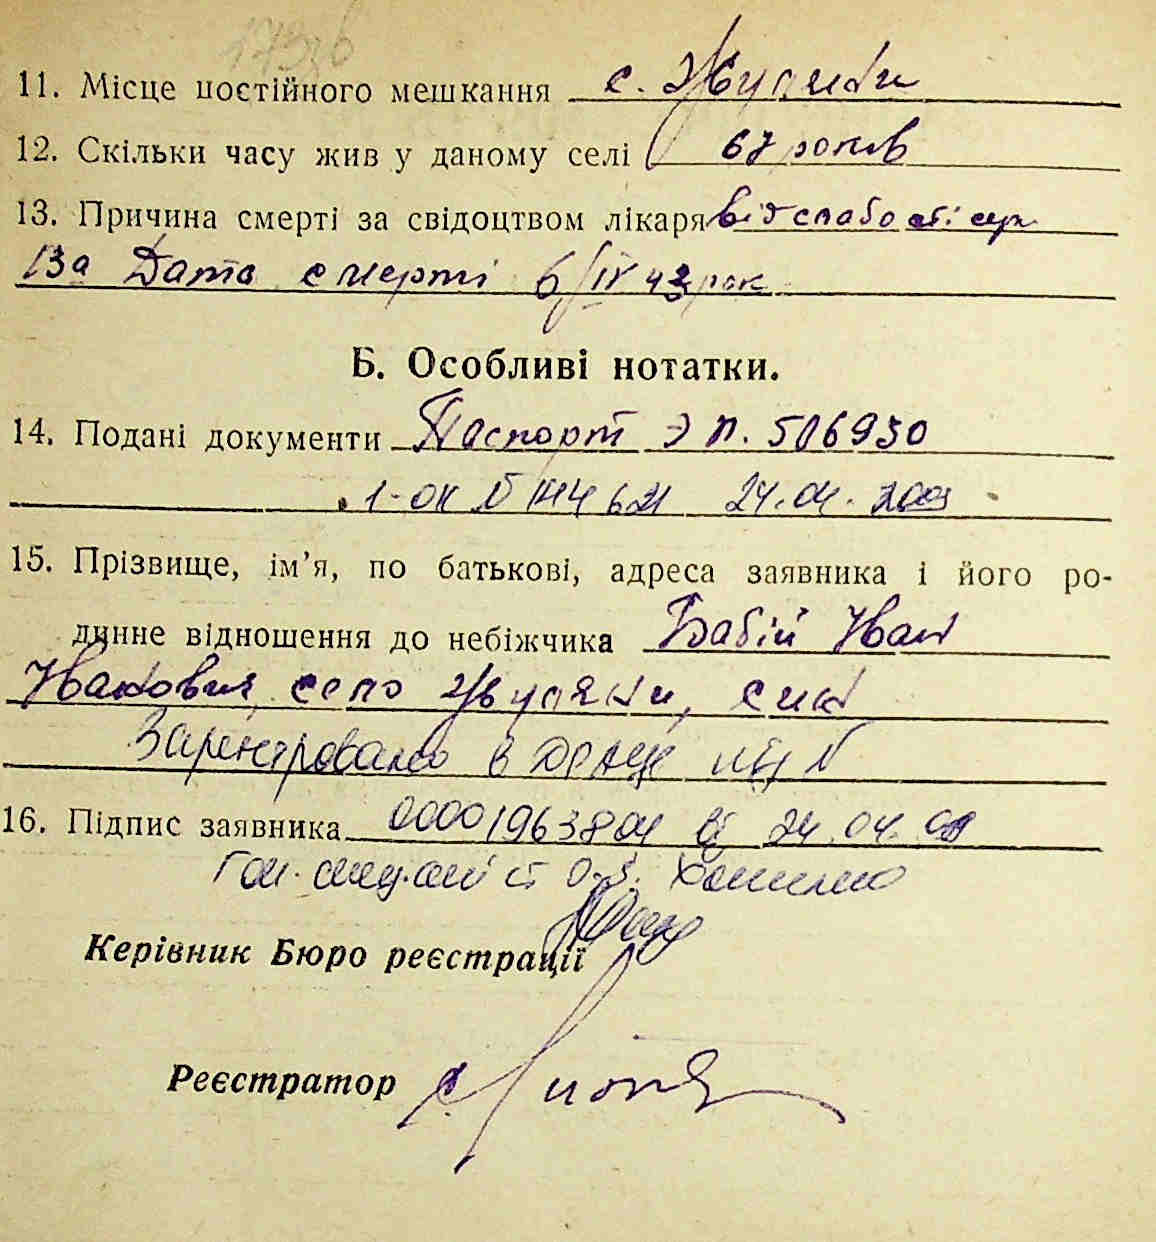 11. Місце постійного мешкання с. Жуляни
12. Скільки часу жив у даному селі 67 років
13. Причина смерті за свідоцтвом лікаря від слабості сер
ца Дата смерті 6/IV 43 рок
Б. Особливі нотатки.
14. Подані документи Паспорт Э П. 506930
24.04.
15. Прізвище, ім’я, по батькові, адреса заявника і його ро-
динне відношення до небіжчика Бабій Иван
Иванович, село Жуляни, син
Зареєстровано в ДРАЦС
16. Підпис заявника 00001963804 від 24.04.
Керівник Бюро реєстрації
Реєстратор